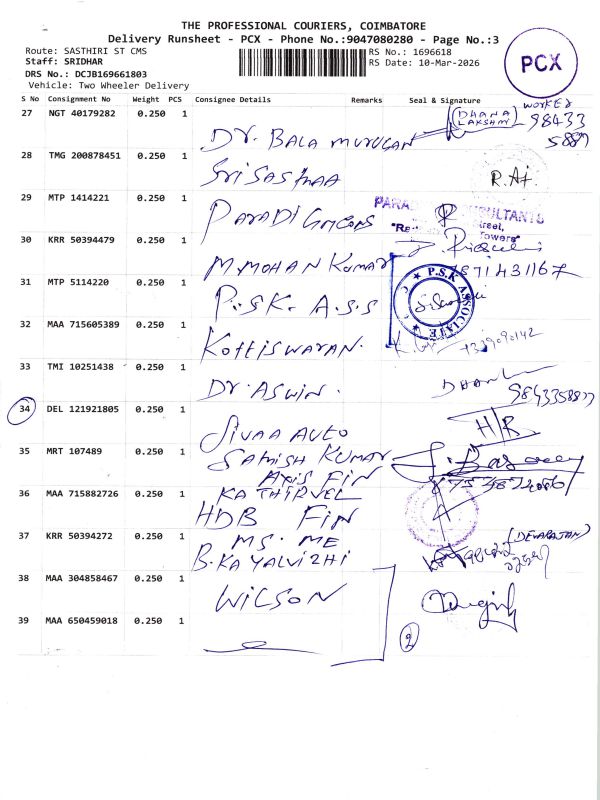 THE PROFESSIONAL COURIERS, COIMBATORE
Delivery Runsheet - PCX - Phone No.:9047080280 - Page No.:3
Route: SASTHIRI ST CMS
RS No.: 1696618
PCX
Staff: SRIDHAR
RS Date: 10-Mar-2026
DRS No.: DCJB169661803
Vehicle: Two Wheeler Delivery
S No Consignment No Weight PCS Consignee Details Remarks Seal & Signature
27 NGT 40179282 0.250 1
DR. BALA MURUGAN
DHANA LAKSHMI
WORKER
98433
28 TMG 200878451 0.250 1
SRI SASTHAA
R.At.
29 MTP 1414221 0.250 1
PARADIGMCONS
30 KRR 50394479 0.250 1
M.MOHAN KUMAR
31 MTP 5114220 0.250 1
P.SK. A.S.S
P.S.K ASSOCIATE
32 MAA 715605389 0.250 1
KOTTISWARAN.
33 TMI 10251438 0.250 1
DR. ASWIN.
34 DEL 121921805 0.250 1
SIVAA AUTO
H/R
35 MRT 107489 0.250 1
SATHISH KUMAR
AXIS FIN
36 MAA 715882726 0.250 1
KATHIRVEL
HDB FIN
37 KRR 50394272 0.250 1
MS. ME
B.KAYALVIZHI
(DEVARAJAN)
38 MAA 304858467 0.250 1
WILSON
39 MAA 650459018 0.250 1
2